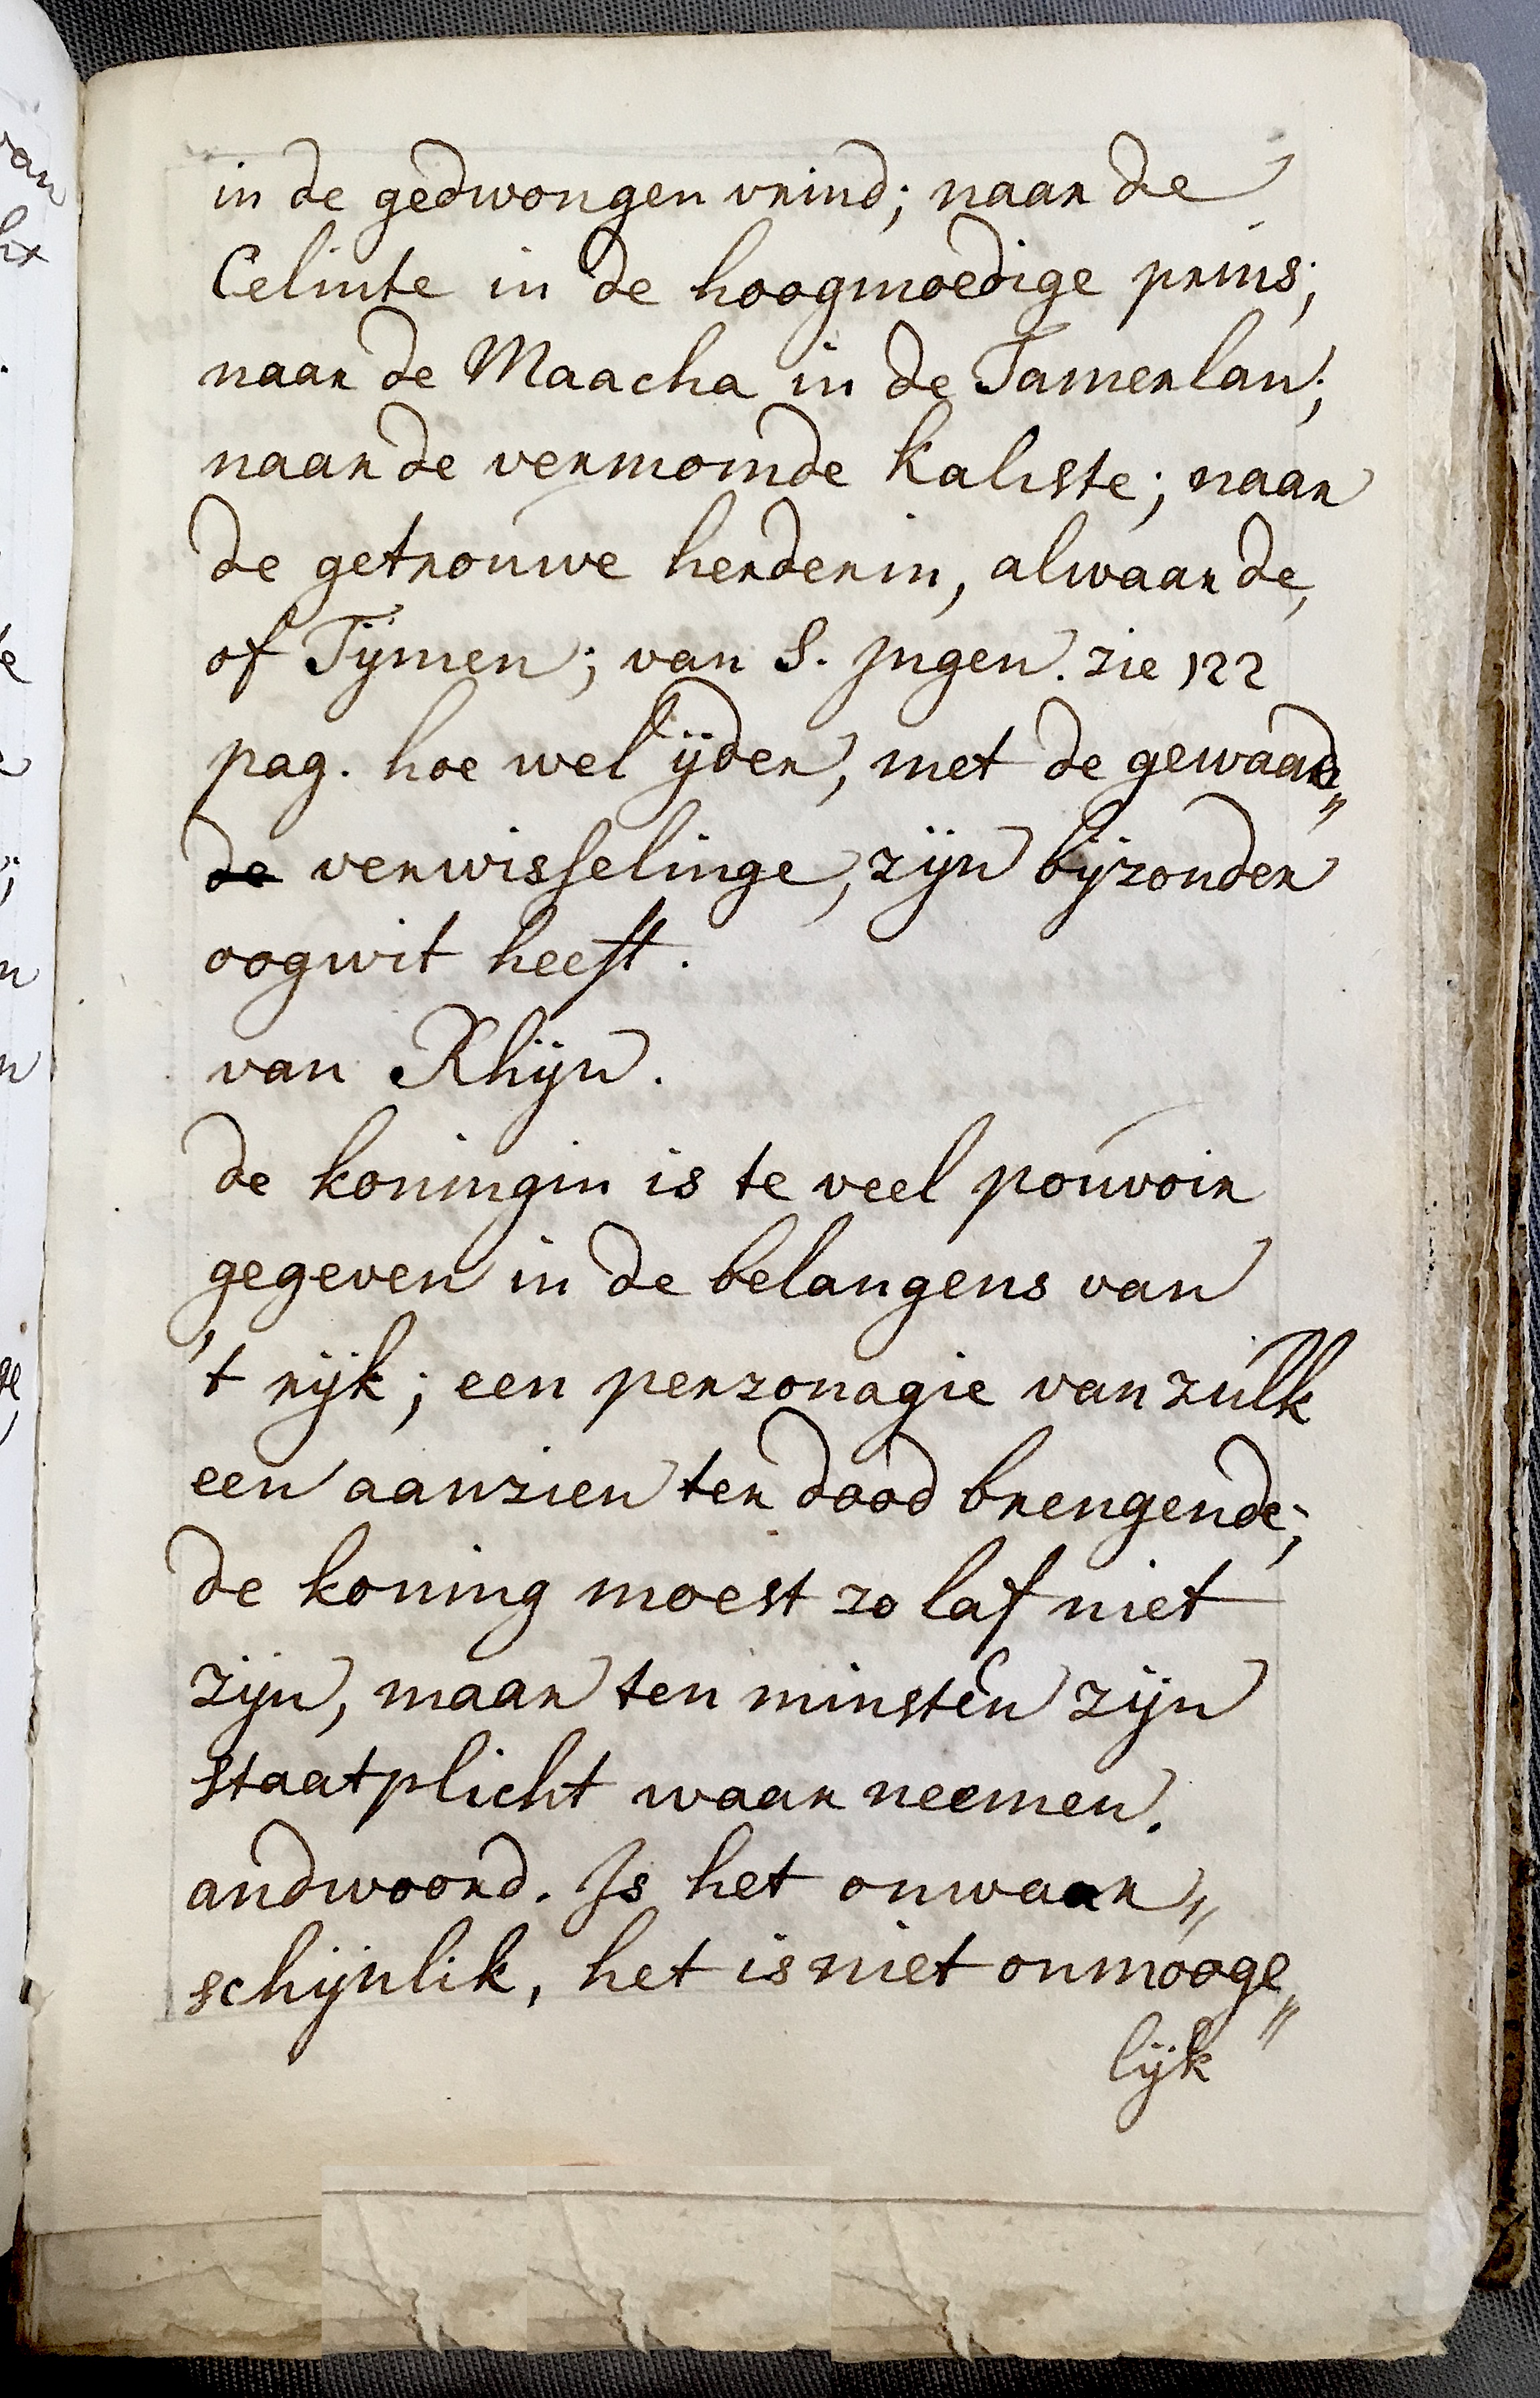 in de gedwongen vrind; naar de
Celinte in de hoogmoedige prins;
naar de Maacha in de Tamerlan;
naar de vermomde Kaliste; naar
de getrouwe herderin, alwaar de,
of Tymen; van S. Ingen. zie 122
pag. hoe wel ijder, met de gewaad„
de verwisselinge, zijn bijzonder
oogwit heeft.
van Rhijn.
de koningin is te veel pouvoir
gegeven in de belangens van
't rijk; een perzonagie van zulk
een aanzien ter dood brengende;
de koning moest zo laf niet
zijn, maar ten minsten zijn
staatplicht waar neemen.
andwoord. Is het onwaar„
schijnlik, het is niet onmooge„
lijk